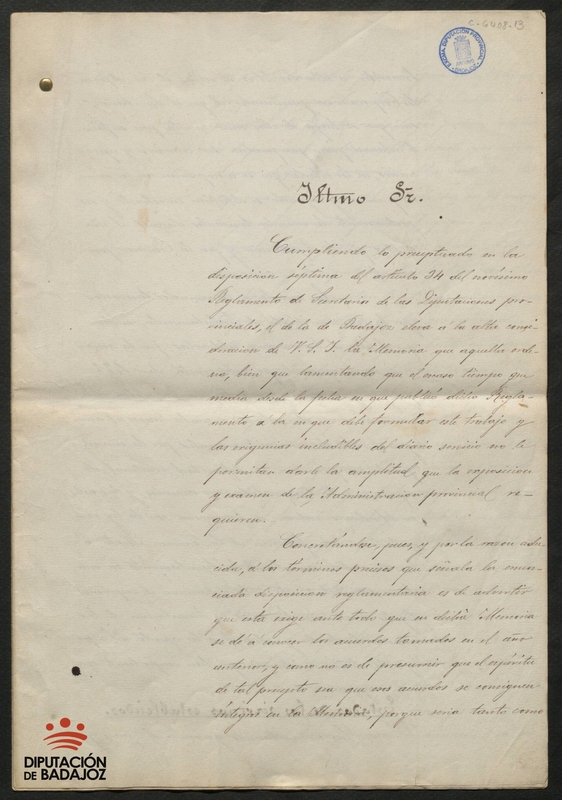 C-6408.13
EXCMA. DIPUTACIÓN PROVINCIAL
BADAJOZ
Iltmo Sr.
Cumpliendo lo preceptuado en la
disposición séptima del artículo 24 del novísimo
Reglamento de Secretarios de las Diputaciones pro-
vinciales, el de la de Badajoz eleva a la alta consi-
deracion de V. S. I. la Memoria que aquella orde-
na, bien que lamentando que el escaso tiempo que
media desde la fecha en que publicó dicho Regla-
mento a la en que debe formular este trabajo y
las exigencias ineludibles del diario servicio no le
permitan darle la amplitud que la exposicion
y examen de la Administracion provincial re-
quieren.
Concretándose, pues, y por la razon adu-
cida, á los términos precisos que señala la enun-
ciada disposicion reglamentaria es de advertir
que esta exige ante todo que en dicha Memoria
se dé á conocer los acuerdos tomados en el año
anterior; y como no es de presumir que el espíritu
de tal precepto sea que esos acuerdos se consignen
íntegros en la Memoria, porque seria tanto como
DIPUTACIÓN
DE BADAJOZ